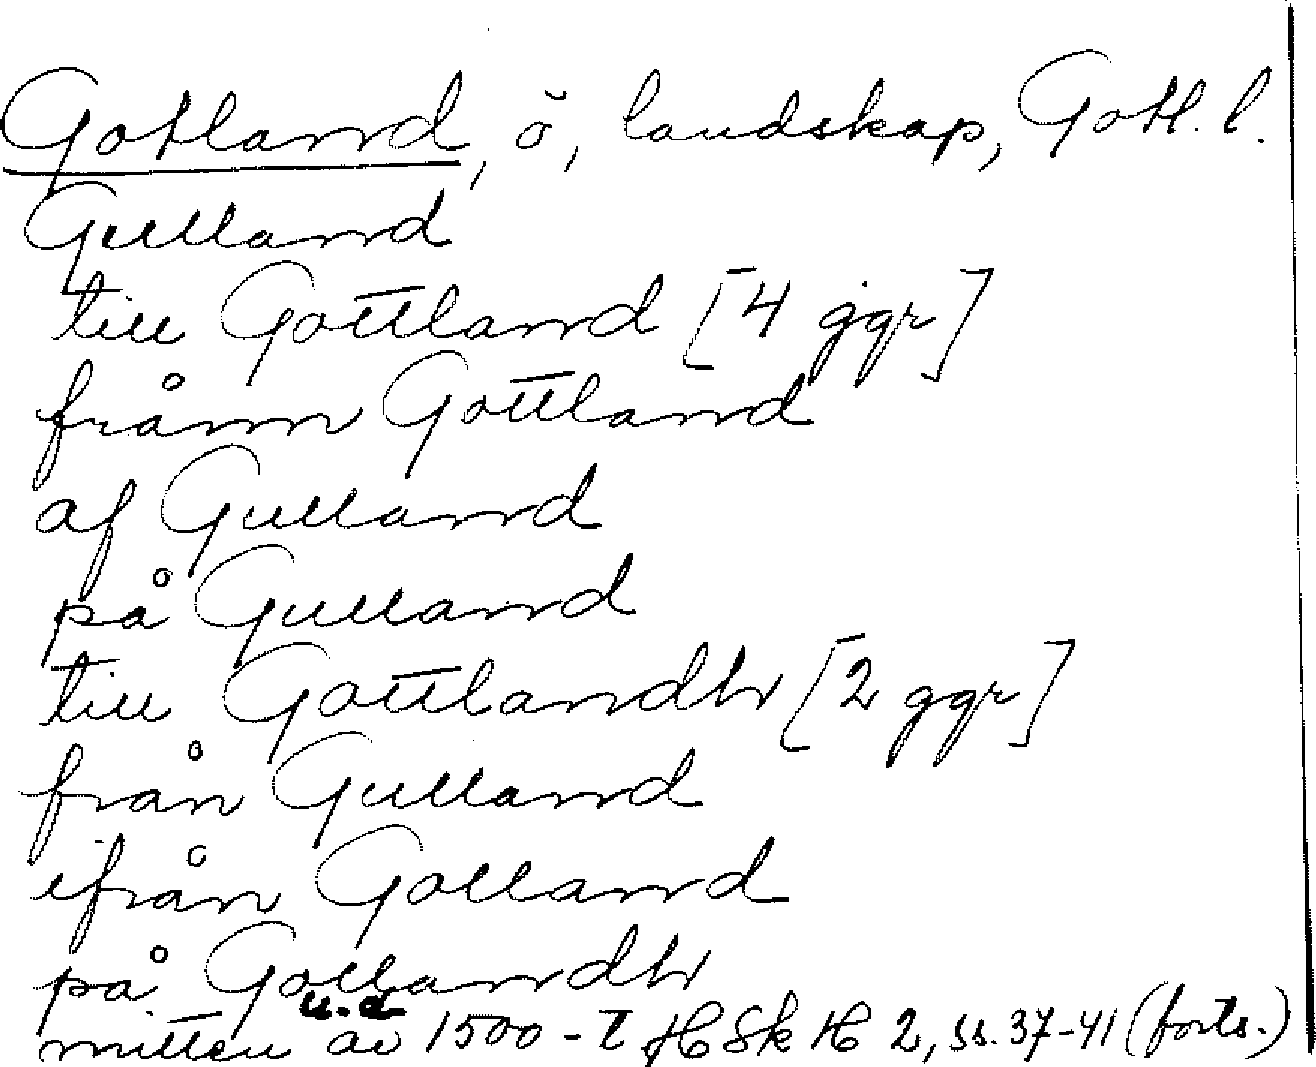 Gotland, ö, landskap, Gotl. l.
Gulland
till Gottland [4 ggr]
frånn Gottland
af Gulland
på Gulland
till Gottlandh [2 ggr]
från Gulland
ifrån Golland
på Gollandh
u.d.
mitten av 1500-t HSkH 2, ss. 37-41 (forts.)